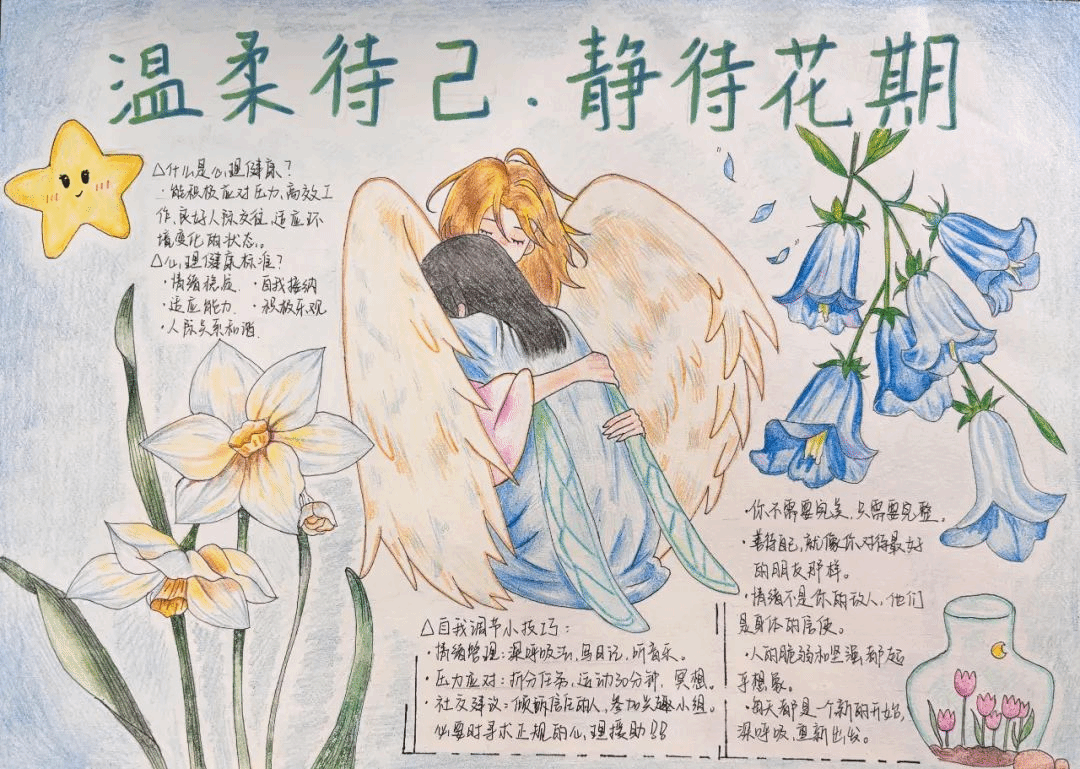 温柔待己·静待花期
△什么是心理健康?
·能积极应对压力,高效工
作,良好人际交往,适应环
境变化的状态。
△心理健康标准?
·情绪稳定. ·自我接纳
·适应能力. ·积极乐观
·人际关系和谐.
△自我调节小技巧:
·情绪管理:深呼吸法,写日记,听音乐。
·压力应对:拆分任务,运动30分钟,冥想。
·社交建议:倾诉信任的人,参加兴趣小组。
必要时寻求正规的心理援助!!
·你不需要完美,只需要完整。
·善待自己,就像你对待最好
的朋友那样。
·情绪不是你的敌人,他们
是身体的信使。
·人的脆弱和坚强都超
乎想象。
·每天都是一个新的开始,
深呼吸,重新出发。